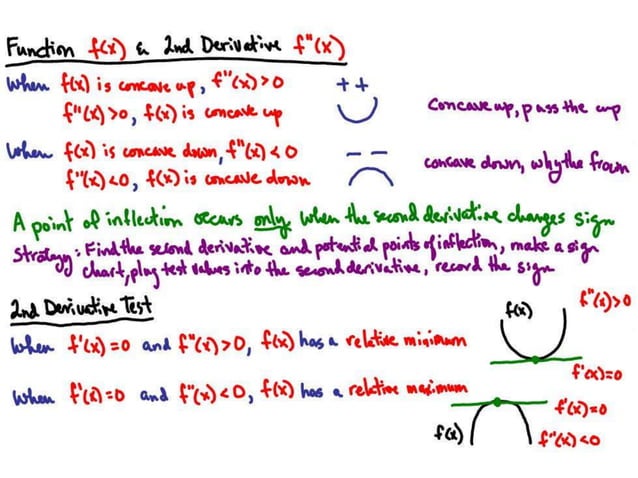 Function f(x) & 2nd Derivative f"(x)
When f(x) is concave up, f"(x)>0
++
f"(x)>0, f(x) is concave up
Concave up, pass the cup
When f(x) is concave down, f"(x)<0
--
f"(x)<0, f(x) is concave down
concave down, why the frown
A point of inflection occurs only when the second derivative changes sign
Strategy: Find the second derivative and potential points of inflection, make a sign
chart, plug test values into the second derivative, record the sign
2nd Derivative Test
When f'(x)=0 and f"(x)>0, f(x) has a relative minimum
f(x)
f"(x)>0
f'(x)=0
When f'(x)=0 and f"(x)<0, f(x) has a relative maximum
f'(x)=0
f(x)
f"(x)<0